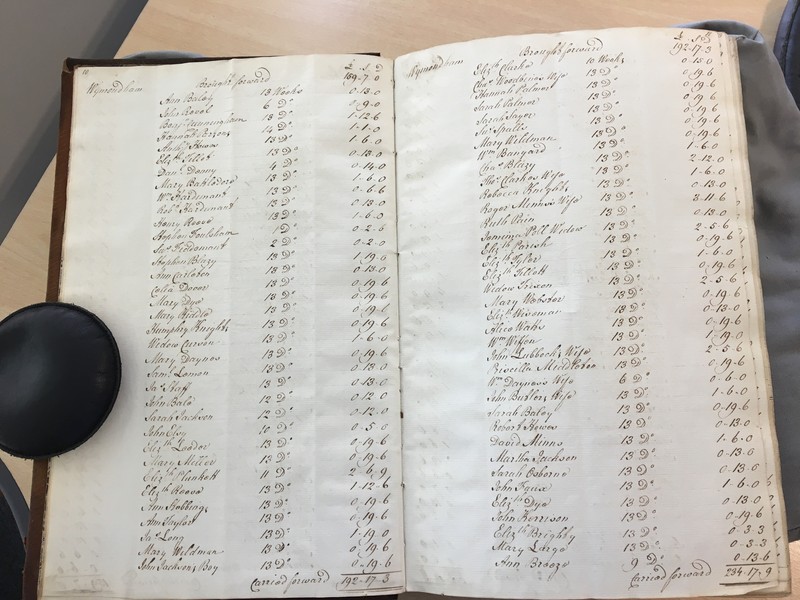 £ s d
Wymondham Brought forward 159-7-0
Ann Baley 13 Weeks 0-13-0
John 6 Do 0-9-0
Benj. Cunningham 13 Do 1-12-6
Hannah 14 Do 1-1-0
Anthy. 13 Do 1-6-0
Eliz.th Tillot 13 Do 0-13-0
Dan.l Denny 4 Do 0-14-0
Mary 13 Do 1-6-0
Wm. Hardement 13 Do 0-6-6
Rob.t Hardement 13 Do 0-13-0
Henry Reeve 13 Do 1-6-0
Stephen Foulsham 1 Do 0-2-6
2 Do 0-2-0
Stephen Blazy 13 Do 1-19-0
Ann 13 Do 0-13-0
13 Do 0-19-6
Mary Dye 13 Do 0-19-6
Mary Riddle 13 Do 0-19-6
Humphry Knights 13 Do 0-19-6
Widow 13 Do 1-6-0
Mary Daynes 13 Do 0-19-6
Sam.l Lemon 13 Do 0-13-0
Jas. Staff 13 Do 0-13-0
John Bale 12 Do 0-12-0
Sarah Jackson 12 Do 0-12-0
John 10 Do 0-5-0
Eliz.th Leeder 13 Do 0-19-6
Mary Miller 13 Do 0-19-6
Eliz.th Plunkett 11 Do 2-6-9
Eliz.th Reeve 13 Do 1-12-6
Ann Stubbings 13 Do 0-19-6
Ann Taylor 13 Do 0-19-6
Jas. Long 13 Do 1-19-0
Mary Wildman 13 Do 0-19-6
John Jacksons Boy 13 Do 0-19-6
Carried forward 192-17-3
£ s d
Wymondham Brought forward 192-17-3
Eliz.th Clarke 10 Weeks 0-15-0
Wife 13 Do 0-19-6
Hannah Palmer 13 Do 0-19-6
Sarah Palmer 13 Do 0-19-6
Sarah Sayer 13 Do 0-19-6
Spalls 13 Do 0-19-6
Mary Wildman 13 Do 0-19-6
Wm. Banyard 13 Do 1-6-0
Blazy 13 Do 2-12-0
Thos. Clarkes Wife 13 Do 1-6-0
Rebecca Knights 13 Do 0-13-0
Roger Minns's Wife 13 Do 3-11-6
Ruth Pein 13 Do 0-13-0
Jemima Poll Widow 13 Do 2-5-6
Eliz.th Parish 13 Do 0-19-6
Eliz.th Tyler 13 Do 1-6-0
Eliz.th Tillett 13 Do 0-19-6
Widow 13 Do 2-5-6
Mary Webster 13 Do 0-19-6
Eliz.th Wiseman 13 Do 0-13-0
Alice Watts 13 Do 0-19-6
Wm. 13 Do 1-19-0
John Lubbocks Wife 13 Do 2-5-6
Priscilla 13 Do 0-19-6
Wm. Daynes's Wife 6 Do 0-6-0
John Butlers Wife 13 Do 1-6-0
Sarah Baley 13 Do 0-19-6
Robert Howes 13 Do 0-13-0
David Minns 13 Do 1-6-0
Martha Jackson 13 Do 0-13-0
Sarah Osborne 13 Do 0-13-0
John 13 Do 1-6-0
Eliz.th Dye 13 Do 0-13-0
John 13 Do 0-19-6
Eliz.th Brighty 13 Do 0-3-3
Mary Large 13 Do 0-3-3
Ann Breeze 9 Do 0-13-6
Carried forward 234-17-9